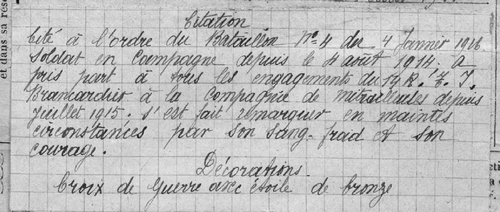 Citation
Cité à l'ordre du Bataillon N° 4 du 4 Janvier 1916
Soldat en campagne depuis le 4 août 1914. a
pris part à tous les engagements du
Brancardier à la compagnie de mitrailleuses depuis
Juillet 1915. s'est fait remarquer en maintes
circonstances par son sang-froid et son
courage.
Décorations.
Croix de Guerre avec étoile de bronze
et dans sa rése